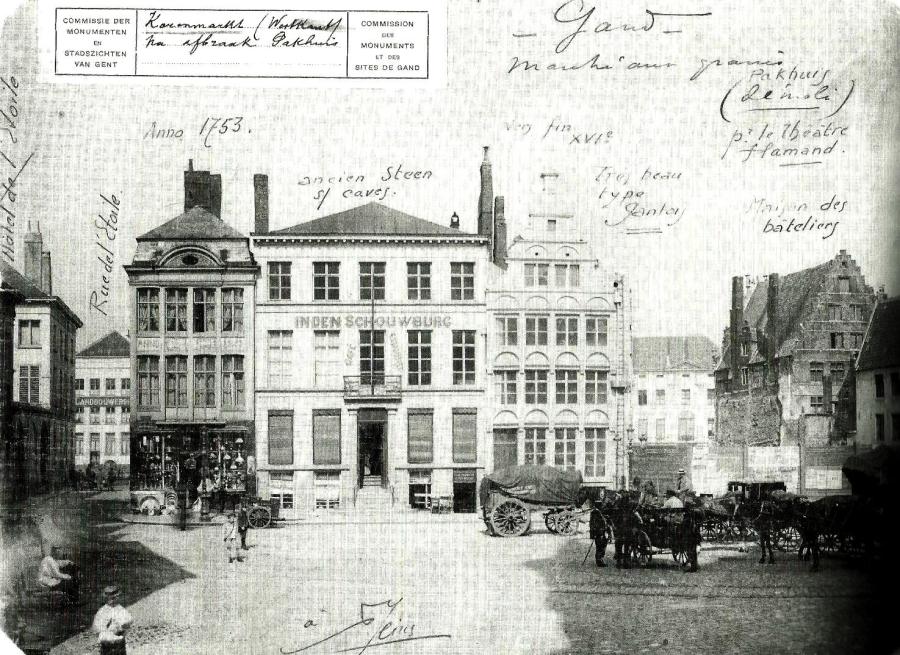 COMMISSIE DER
MONUMENTEN
EN
STADSZICHTEN
VAN GENT
Korenmarkt (Westkant)
na afbraak Pakhuis
COMMISSION
DES
MONUMENTS
ET DES
SITES DE GAND
Gand
Marché aux grains
Pakhuis
(démoli)
pr le Théatre
flamand.
Hotel de l'Etoile
Rue de l'Etoile
Anno 1753.
ancien Steen
s/ caves.
fin
XVIe
Tres beau
type
Gantois
Maison des
bâteliers
IN DEN SCHOUWBURG
ANNO
LANDBOUWERS
à